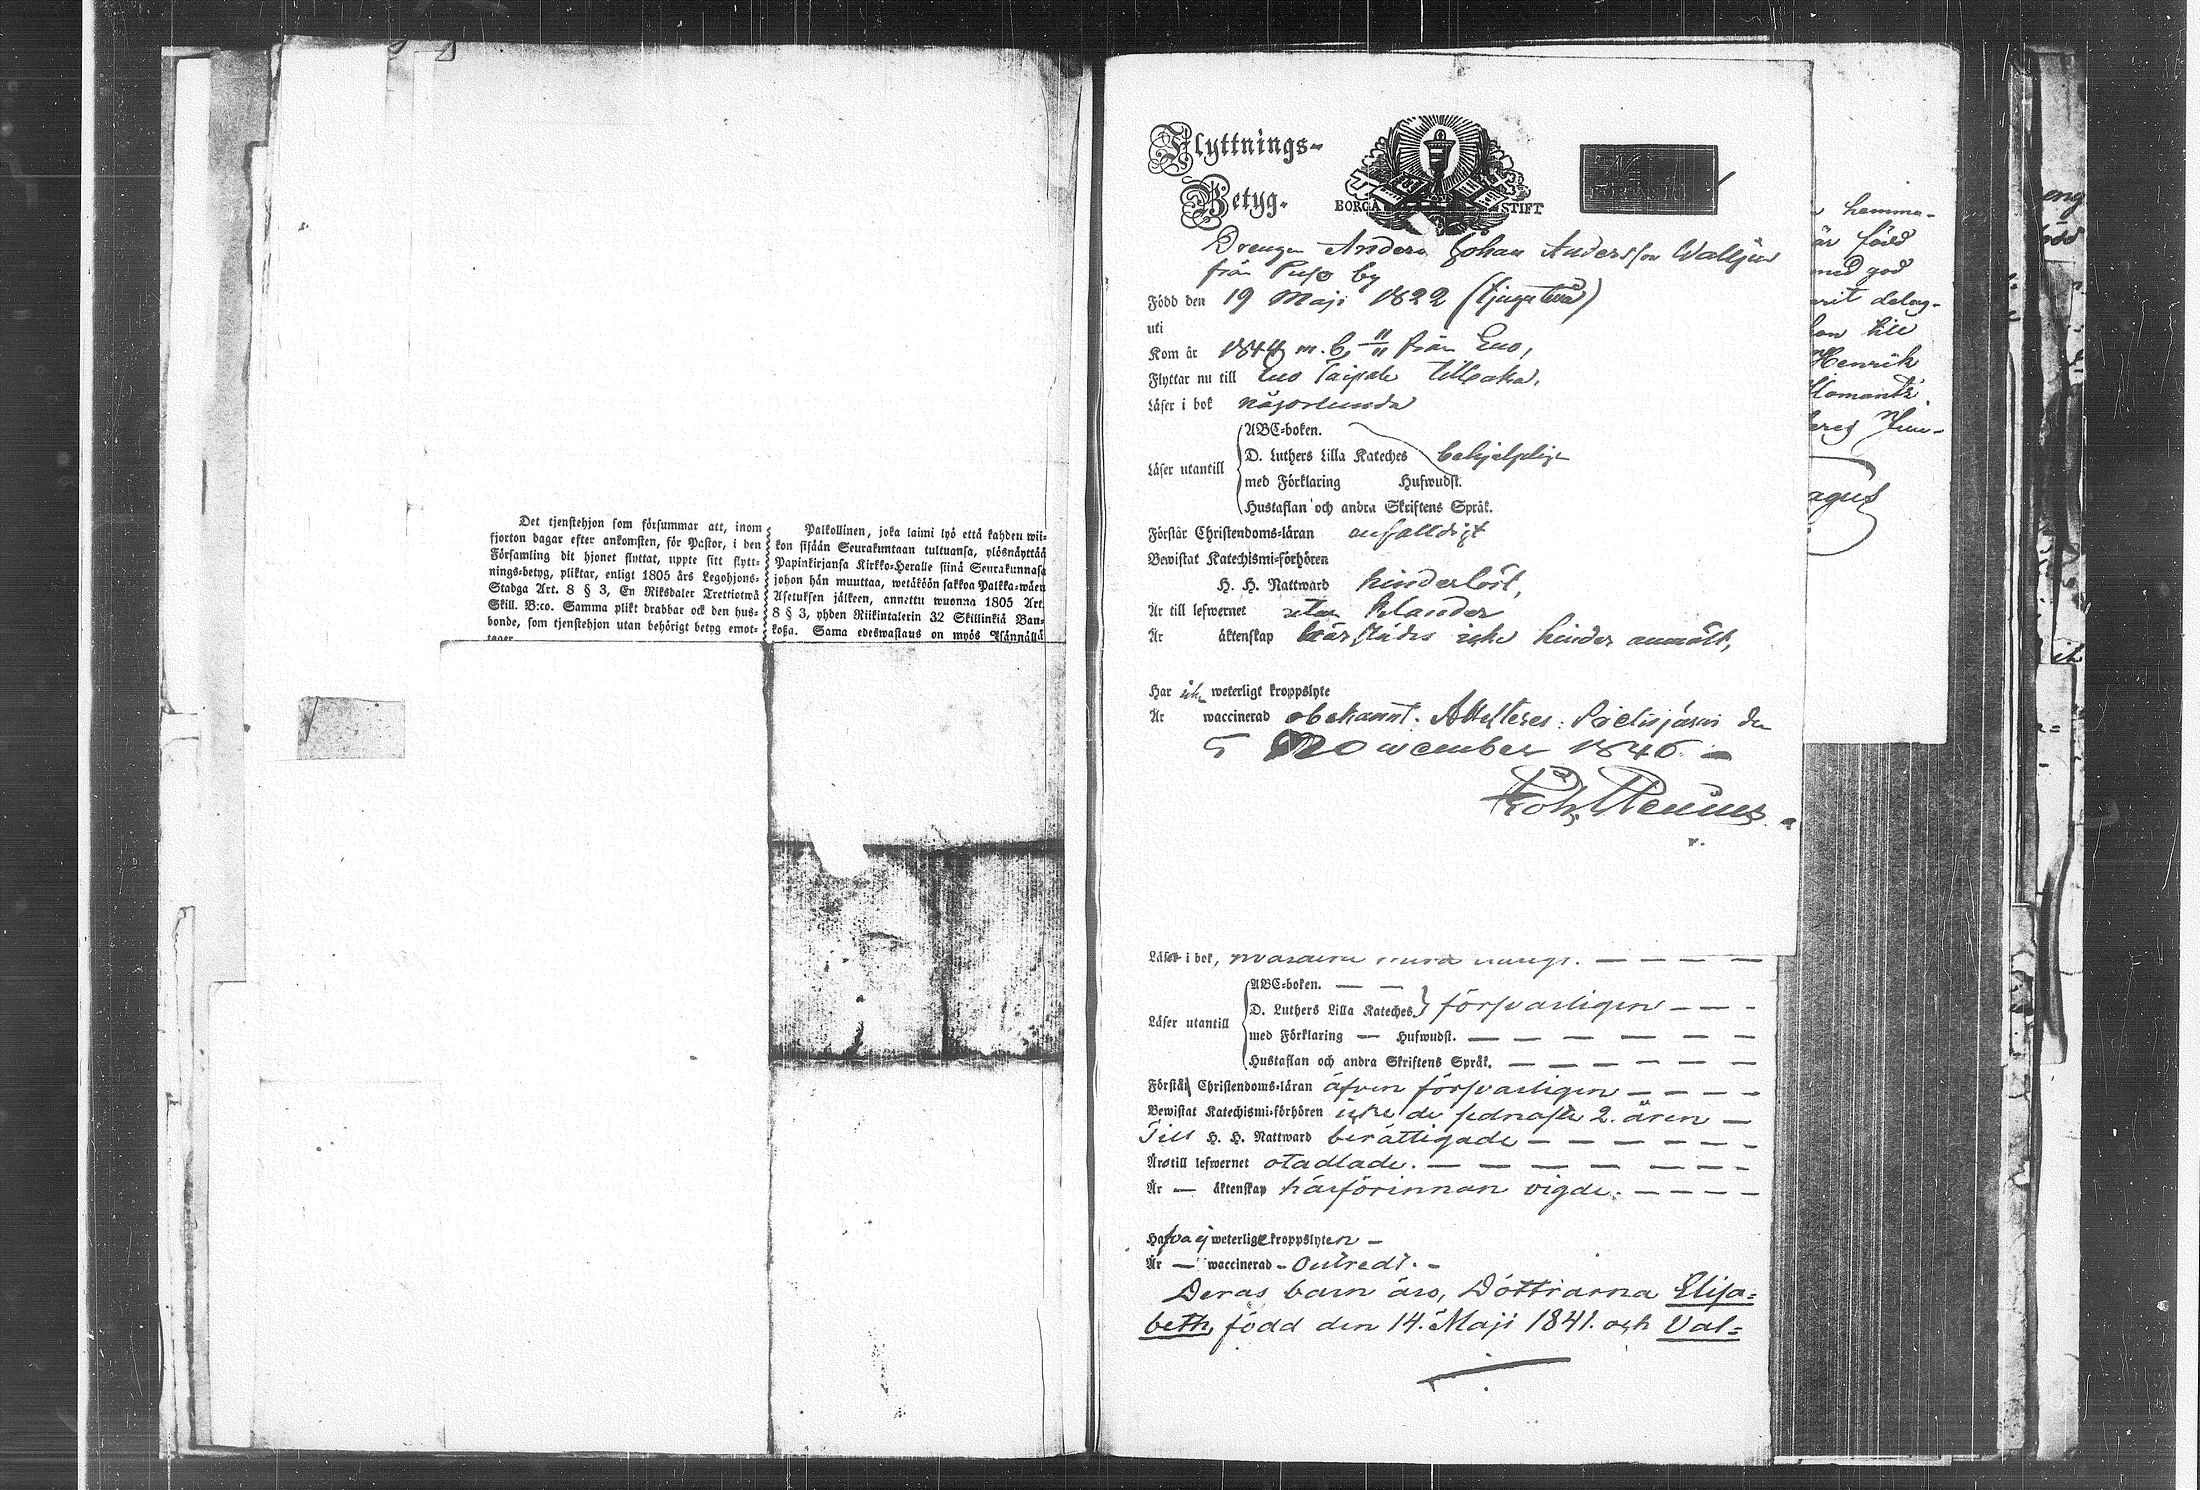 Det tjenstehjon som försummar att, inom
fjorton dagar efter ankomsten, för Pastor, i den
Församling dit hjonet flyttat, uppte sitt flytt-
nings-betyg, pliktar, enligt 1805 års Legohjons-
Stadga Art. 8 § 3, En Riksdaler Trettiotwå
Skill. B:co. Samma plikt drabbar ock den hus-
bonde, som tjenstehjon utan behörigt betyg emot-
tager
Palkollinen, joka laimi lyö että kahden wii-
kon sisään Seurakuntaan tultuansa, ylösnäyttää
Papinkirjansa Kirkko-Heralle siinä Seurakunnasa
johon hän muuttaa, wetäköön sakkoa Palkka-wäen
Asetuksen jälkeen, annettu wuonna 1805 Art.
8 § 3, yhden Riikintalerin 32 Skillinkiä Ban-
koßa. Sama edeswastaus on myös Isännällä
Flyttnings-
Betyg.
BORGÅ STIFT
Drengen Anders Johan Andersson
från Puso by
Född den 19 Maji 1822 (tjugu två)
uti
Kom år 1844 m. b. 11/11 från Eno,
Flyttar nu till Eno Paipale tillbaka.
Läser i bok någorlunda
Läser utantill
ABC-boken.
D. Luthers Lilla Kateches behjelpligt
med Förklaring Hufwudst.
Hustaflan och andra Skriftens Språk.
Förstår Christendoms-läran enfalldigt
Bewistat Katechismi-förhören
H. H. Nattward hinderlöst,
Är till lefwernet utan klander
Är äktenskap härstädes icke hinder anmält,
Har icke weterligt kroppslyte
Är waccinerad obekannt. Attesteras: Pielisjärvi den
5 November 1846. —
Läser i bok,
Läser utantill
ABC-boken. — —
D. Luthers Lilla Kateches } försvarligen — — -
med Förklaring — Hufwudst. — — — — — —
Hustaflan och andra Skriftens Språk. — — — — — —
Förstå Christendoms-läran äfven försvarligen — — — -
Bewistat Katechismi-förhören icke de sednaste 2. åren —
Till H. H. Nattward berättigade — — — — — — -
Äro till lefwernet otadlade. — — — — — — -
Är — äktenskap härförinnan vigde. — — — —
Hafva ej weterlige kroppslyten —
Är — waccinerad - Outredt. -
Deras barn äro, Döttrarna Elisa=
beth, född den 14. Maji 1841. och Val=
hemma-
är född
med god
till
Henrik